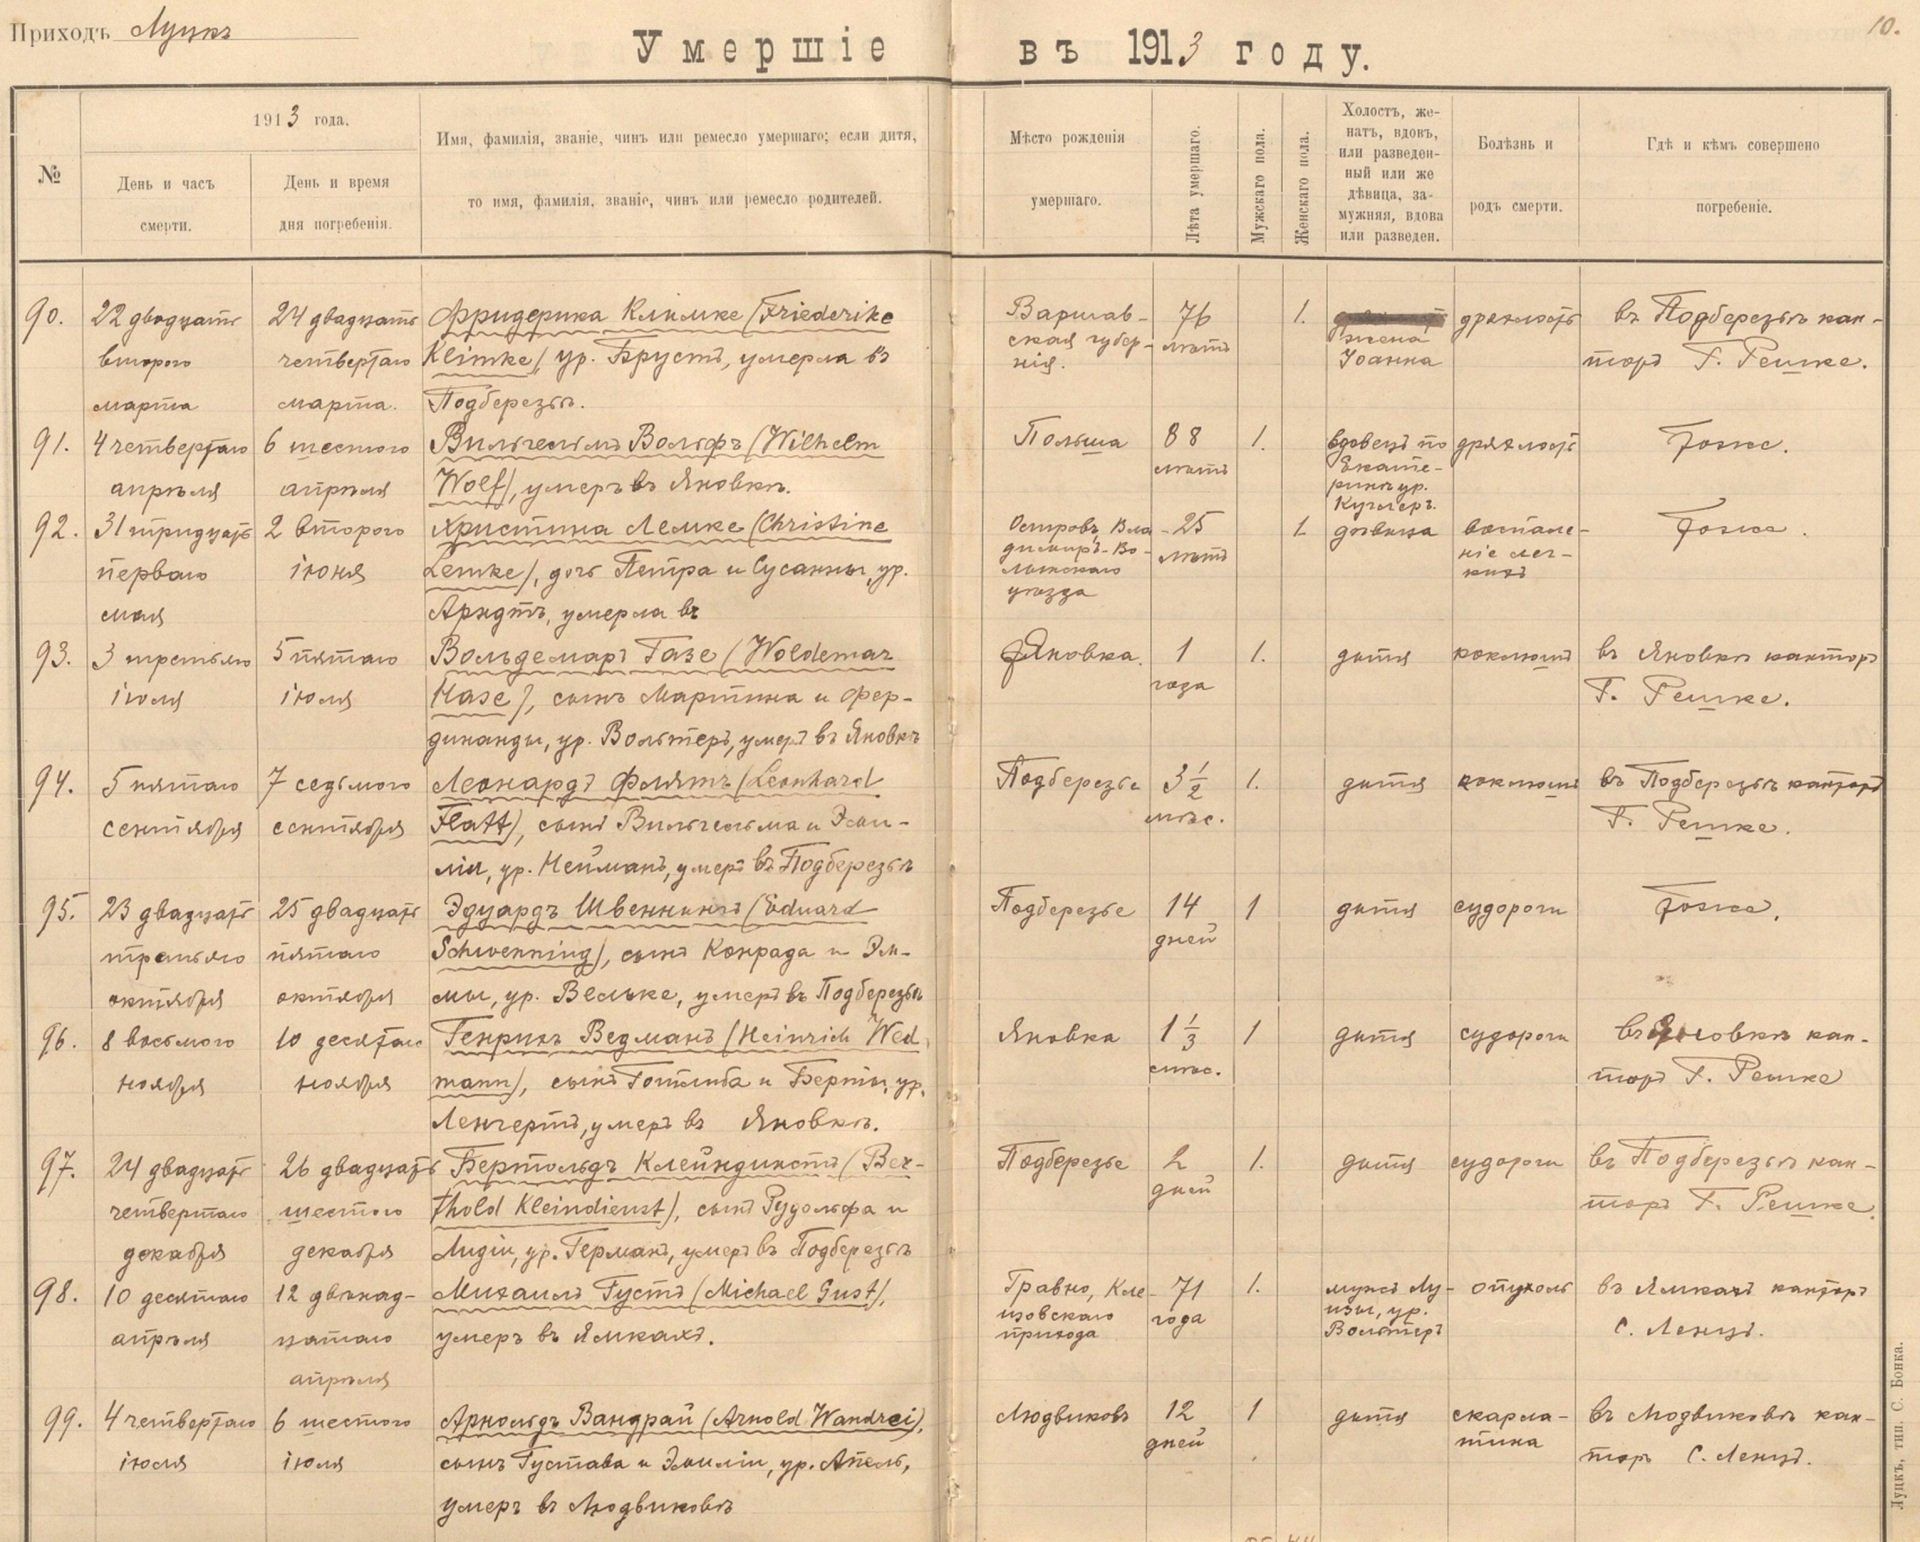 Приходъ Луцкъ
10.
Умершіе въ 1913 году.
№
1913 года.
День и часъ
смерти.
День и время
дня погребенія.
Имя, фамилія, званіе, чинъ или ремесло умершаго; если дитя,
то имя, фамилія, званіе, чинъ или ремесло родителей.
Мѣсто рожденія
умершаго.
Лѣта умершаго.
Мужскаго пола.
Женскаго пола.
Холостъ, же-
натъ, вдовъ,
или разведен-
ный или же
дѣвица, за-
мужняя, вдова
или разведен.
Болѣзнь и
родъ смерти.
Гдѣ и кѣмъ совершено
погребеніе.
90. 22 двадцать 24 двадцать Фридерика Климке (Friederike Варшав- 76 1. дряхлость въ Подберезьѣ кан-
второго четвертаго Klimke), ур. Брустъ, умерла въ ская губер- лѣтъ жена торъ Г. Решке.
марта марта. Подберезьѣ. нія. Іоанна
91. 4 четвертаго 6 шестого Вильгельмъ Вольфъ (Wilhelm Польша 88 1. вдовецъ по дряхлость Тоже.
апрѣля апрѣля Wolf), умеръ въ Яновкѣ. лѣтъ Екате-
ринѣ ур.
92. 31 тридцать 2 второго Христина Лемке (Christine Островъ, Вла- 25 1. дѣвица воспале- Тоже.
перваго іюня Lemke), дочь Петра и Сусанны, ур. димиръ-Во- лѣтъ ніе лег-
мая Арндтъ, умерла въ лынскаго кихъ
уѣзда
93. 3 третьяго 5 пятаго Вольдемаръ Газе (Woldemar Яновка. 1 1. дитя коклюшъ въ Яновкѣ канторъ
іюля іюля Hase), сынъ Мартина и Фер- года Г. Решке.
динанды, ур. Вольтеръ, умеръ въ Яновкѣ
94. 5 пятаго 7 седьмого Леонардъ Флятъ (Leonhard Подберезье 3 1/2 1. дитя коклюшъ въ Подберезьѣ канторъ
сентября сентября Flatt), сынъ Вильгельма и Эми- мѣс. Г. Решке.
ліи, ур. Нейманъ, умеръ въ Подберезьѣ
95. 23 двадцать 25 двадцать Эдуардъ Швеннингъ (Eduard Подберезье 14 1 дитя судороги Тоже.
третьяго пятаго Schwenning), сынъ Конрада и Эм- дней
октября октября мы, ур. Вельке, умеръ въ Подберезьѣ
96. 8 восьмого 10 десятаго Генрихъ Ведманъ (Heinrich Wed Яновка 1 1/3 1 дитя судороги въ Яновкѣ кан-
ноября ноября mann), сынъ Готлиба и Берты, ур. мѣс. торъ Г. Решке
Ленгертъ, умеръ въ Яновкѣ.
97. 24 двадцать 26 двадцать Бертольдъ Клейндинстъ (Ber- Подберезье 2 1. дитя судороги въ Подберезьѣ кан-
четвертаго шестого thold Kleindienst), сынъ Рудольфа и дней торъ Г. Решке.
декабря декабря Лидіи, ур. Германъ, умеръ въ Подберезьѣ
98. 10 десятаго 12 двѣнад- Михаилъ Густъ (Michael Gust), Гравно, Кле- 71 1. мужъ Лу- опухоль въ Ямкахъ канторъ
апрѣля цатаго умеръ въ Ямкахъ. цовскаго года изы, ур. С. Ленцъ.
апрѣля прихода Вольтеръ
99. 4 четвертаго 6 шестого Арнольдъ Вандрай (Arnold Wandrei), Людвиковъ 12 1 дитя скарла- въ Людвиковѣ кан-
іюля іюля сынъ Густава и Эмиліи, ур. Апель, дней тина торъ С. Ленцъ.
умеръ въ Людвиковѣ
Луцкъ, тип. С. Бонка.